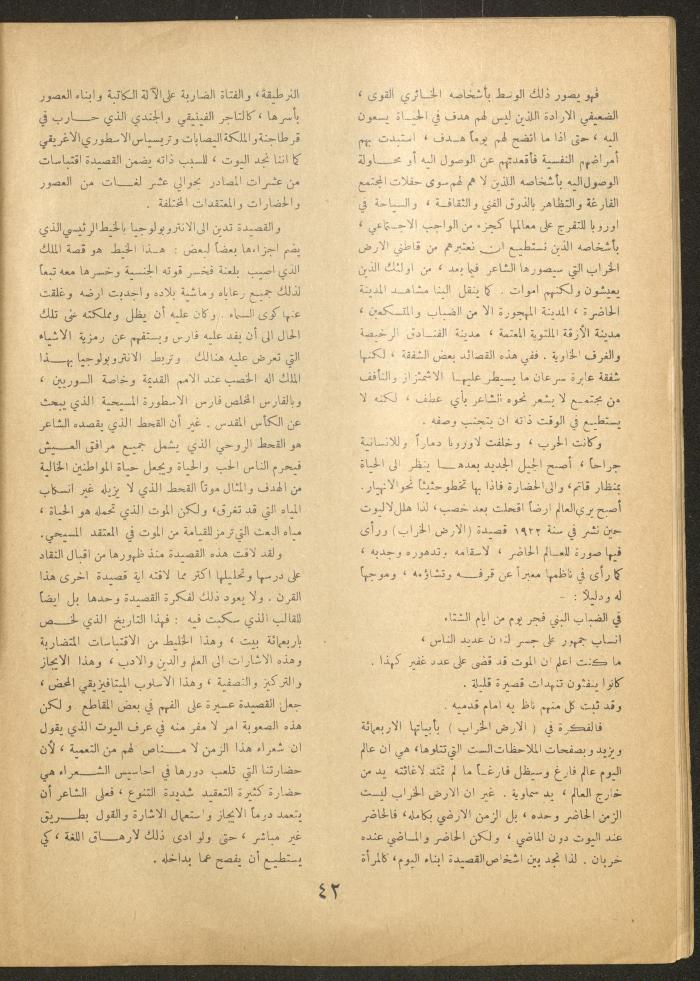 فهو يصور ذلك الوسط بأشخاصه الخائري القوى ،
الضعيفي الارادة اللذين ليس لهم هدف في الحياة يسعون
اليه ، حتى اذا ما اتضح لهم يوماً هدف ، استبدت بهم
أمراضهم النفسية فأقعدتهم عن الوصول اليه أو محاولة
الوصول اليه بأشخاصه اللذين لا هم لهم سوى حفلات المجتمع
الفارغة والتظاهر بالذوق الفني والثقافة ، والسياحة في
اوروبا للتفرج على معالمها كجزء من الواجب الاجتماعي ،
بأشخاصه الذين نستطيع ان نعتبرهم من قاطني الارض
الخراب التي سيصورها الشاعر فيما بعد ، من اولئك الذين
يعيشون ولكنهم اموات . كما ينقل الينا مشاهد المدينة
الحاضرة ، المدينة المهجورة الا من الضباب والمتسكعين ،
مدينة الأزقة الملتوية المعتمة ، مدينة الفنادق الرخيصة
والغرف الخاوية . ففي هذه القصائد بعض الشفقة ، لكنها
شفقة عابرة سرعان ما يسيطر عليها الاشمئزاز والتأفف
من مجتمع لا يشعر نحوه الشاعر بأي عطف ، لكنه لا
يستطيع في الوقت ذاته ان يتجنب وصفه .
وكانت الحرب ، وخلفت لاوروبا دماراً وللانسانية
جراحاً ، أصبح الجيل الجديد بعدها ينظر الى الحياة
بمنظار قاتم، والى الحضارة فاذا بها تخطو حثيثاً نحو الانهيار.
أصبح يرى العالم ارضاً اقحلت بعد خصب ، لذا هلل لاليوت
حين نشر في سنة ١٩٢٢ قصيدة (الارض الخراب) ورأى
فيها صورة للعالم الحاضر ، لاسقامه وتدهوره وجدبه ،
كما رأى في ناظمها معبراً عن قرفه وتشاؤمه ، وموجهاً
له ودليلاً : -
في الضباب البني فجر يوم من ايام الشتاء
انساب جمهور على جسر لندن عديد الناس ،
ما كنت اعلم ان الموت قد قضى على عدد غفير كهذا .
كانوا ينفثون تنهدات قصيرة قليلة .
وقد ثبت كل منهم ناظريه امام قدميه .
فالفكرة في ( الارض الخراب ) بأبياتها الاربعمائة
ويزيد وبصفحات الملاحظات الست التي تتلوها، هي ان عالم
اليوم عالم فارغ وسيظل فارغاً ما لم تمتد لاغاثته يد من
خارج العالم ، يد سماوية . غير ان الارض الخراب ليست
الزمن الحاضر وحده ، بل الزمن الارضي بكامله ، فالحاضر
عند اليوت دون الماضي ، ولكن الحاضر والماضي عنده
خربان . لذا نجد بين اشخاص القصيدة ابناء اليوم ، كالمرأة
النرطيقة، والفتاة الضاربة على الآلة الكاتبة وابناء العصور
بأسرها ، كالتاجر الفينيقي والجندي الذي حارب في
قرطاجنة والملكة اليصابات وتريسياس الاسطوري الاغريقي
كما اننا نجد اليوت ، للسبب ذاته يضمن القصيدة اقتباسات
من عشرات المصادر بحوالي عشر لغات من العصور
والحضارات والمعتقدات المختلفة .
والقصيدة تدين الى الانتروبولوجيا بالخيط الرئيسي الذي
يضم اجزاءها بعضاً لبعض : هذا الخيط هو قصة الملك
الذي اصيب بلعنة فخسر قوته الجنسية وخسرها معه تبعاً
لذلك جميع رعاياه وماشية بلاده واجدبت ارضه وغلقت
عنها كوى السماء . وكان عليه أن يظل ومملكته على تلك
الحال الى أن يفد عليه فارس ويستفهم عن رمزية الاشياء
التي تعرض عليه هنالك . وتربط الانتروبولوجيا بهذا
الملك اله الخصب عند الامم القديمة وخاصة السوريين ،
وبالفارس المخلص فارس الاسطورة المسيحية الذي يبحث
عن الكأس المقدس . غير أن القحط الذي يقصده الشاعر
هو القحط الروحي الذي يشمل جميع مرافق العيش
فيحرم الناس الحب والحياة ويجعل حياة المواطنين الخالية
من الهدف والمثال موتاً القحط الذي لا يزيله غير انسكاب
المياه التي قد تغرق ، ولكن الموت الذي تحمله هو الحياة ،
مياه البعث التي ترمز للقيامة من الموت في المعتقد المسيحي.
ولقد لاقت هذه القصيدة منذ ظهورها من اقبال النقاد
على درسها وتحليلها اكثر مما لاقته اية قصيدة اخرى هذا
القرن . ولا يعود ذلك لفكرة القصيدة وحدها بل ايضاً
للقالب الذي سكبت فيه : فهذا التاريخ الذي لخص
باربعمائة بيت ، وهذا الخليط من الاقتباسات المتضاربة
وهذه الاشارات الى العلم والدين والادب ، وهذا الايجاز
والتركيز والتصفية ، وهذا الاسلوب الميتافيزيقي المحض ،
جعل القصيدة عسيرة على الفهم في بعض المقاطع . ولكن
هذه الصعوبة امر لا مفر منه في عرف اليوت الذي يقول
ان شعراء هذا الزمن لا مناص لهم من التعمية ، لأن
حضارتنا التي تلعب دورها في احاسيس الشعراء هي
حضارة كثيرة التعقيد شديدة التنوع ، فعلى الشاعر أن
يتعمد درماً الايجاز واستعمال الاشارة والقول بطريق
غير مباشر ، حتى ولو ادى ذلك لارهاق اللغة ، كي
يستطيع أن يفصح عما بداخله .
٤٢